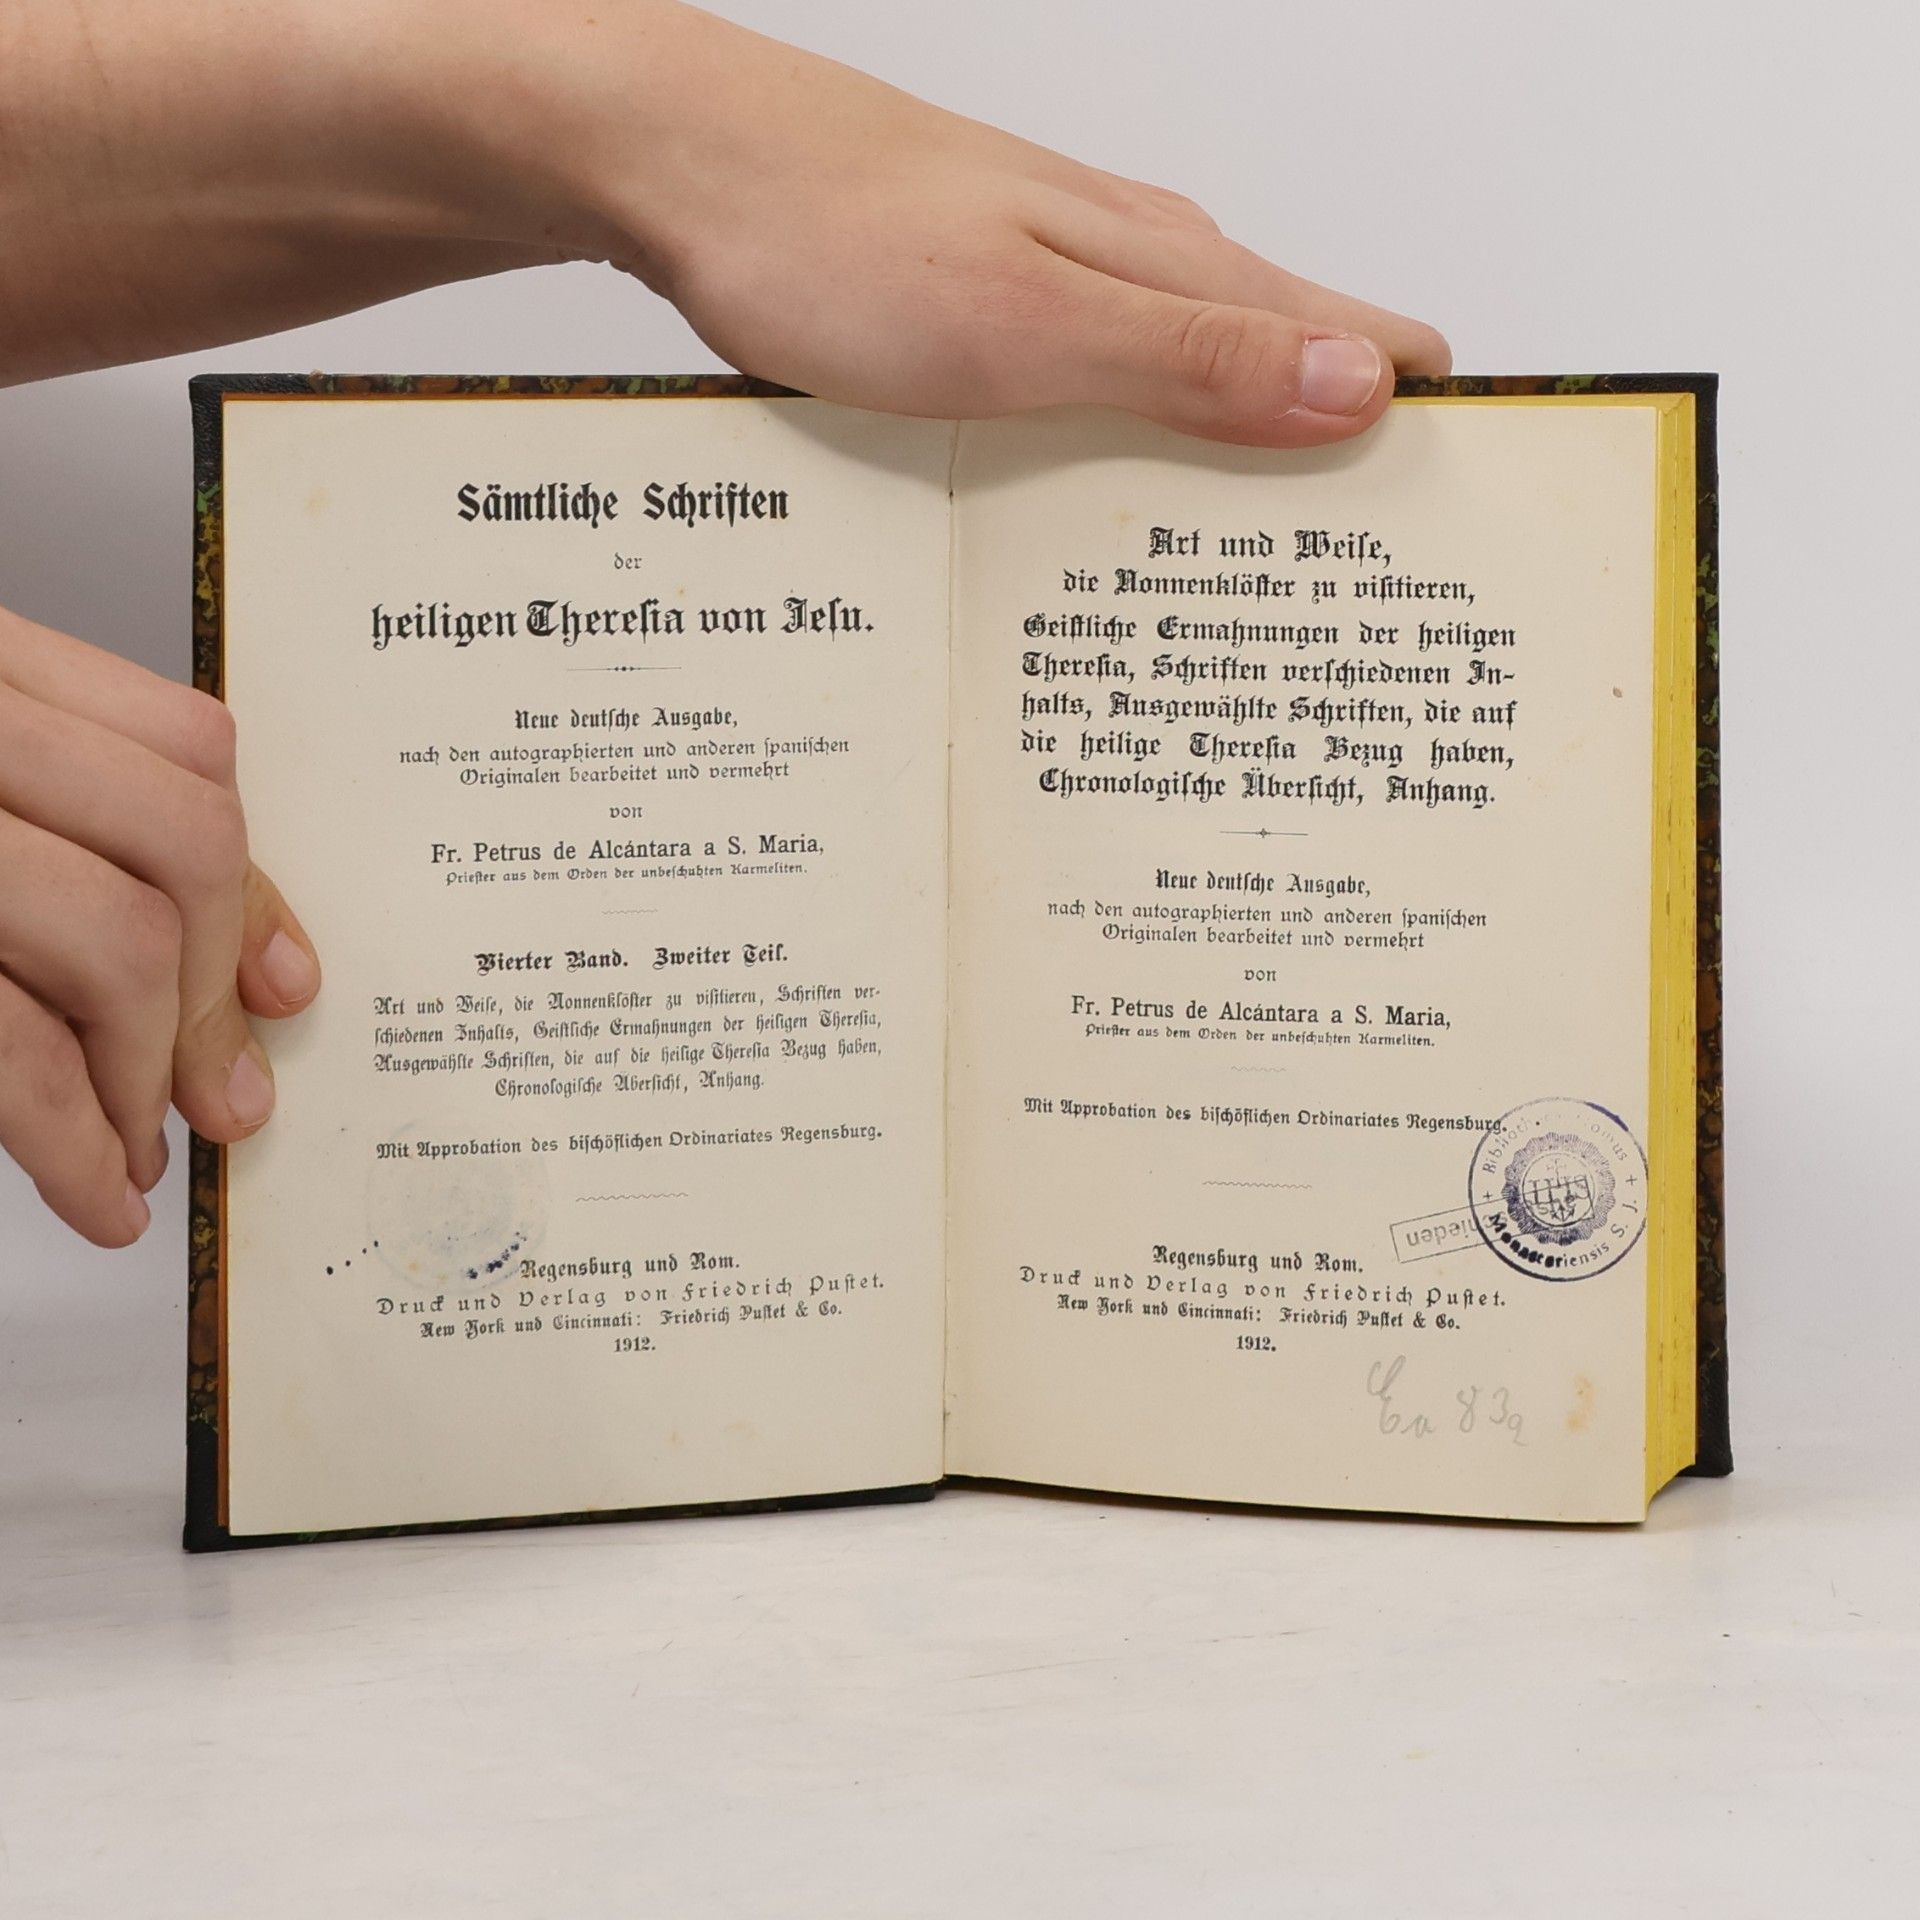 Sämtliche Schriften
der
heiligen Theresia von Jesu.
Neue deutsche Ausgabe,
nach den autographierten und anderen spanischen
Originalen bearbeitet und vermehrt
von
Fr. Petrus de Alcántara a S. Maria,
Priester aus dem Orden der unbeschuhten Karmeliten.
Vierter Band. Zweiter Teil.
Art und Weise, die Nonnenklöster zu visitieren, Schriften ver-
schiedenen Inhalts, Geistliche Ermahnungen der heiligen Theresia,
Ausgewählte Schriften, die auf die heilige Theresia Bezug haben,
Chronologische Übersicht, Anhang.
Mit Approbation des bischöflichen Ordinariates Regensburg.
Regensburg und Rom.
Druck und Verlag von Friedrich Pustet.
New York und Cincinnati: Friedrich Pustet & Co.
1912.
Art und Weise,
die Nonnenklöster zu visitieren,
Geistliche Ermahnungen der heiligen
Theresia, Schriften verschiedenen In-
halts, Ausgewählte Schriften, die auf
die heilige Theresia Bezug haben,
Chronologische Übersicht, Anhang.
Neue deutsche Ausgabe,
nach den autographierten und anderen spanischen
Originalen bearbeitet und vermehrt
von
Fr. Petrus de Alcántara a S. Maria,
Priester aus dem Orden der unbeschuhten Karmeliten.
Mit Approbation des bischöflichen Ordinariates Regensburg.
Monasteriensis S. J.
IHS
Regensburg und Rom.
Druck und Verlag von Friedrich Pustet.
New York und Cincinnati: Friedrich Pustet & Co.
1912.